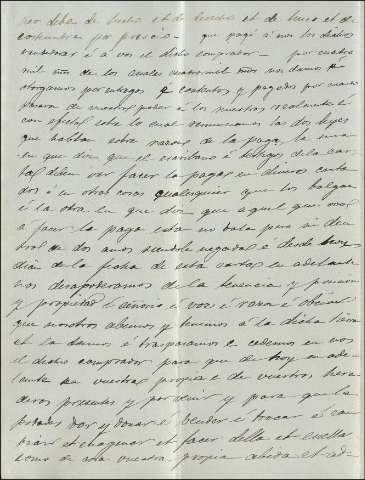 ser debe de fecho et de derecho et de huso et de
costumbre por precio - que pagó á nos los dichos
vendedores é á vos el dicho comprador - por cuatro
mil mrs de los cuales cuatromil mrs nos damos é
otorgamos por entregos é contentos y pagados por cuanto
pasaron de vuestro poder á los nuestros realmente é
con efecto sobre lo cual renunciamos las dos leyes
que hablan sobre razon de la paga, la una
en que dice que el escribano é testigos de la car-
ta deben ver facer la paga en dineros conta
dos ó en otras cosas qualesquier que los balga
é la otra en que dice que aquel que
á facer la paga esta no bala para si den
tro de dos años seyendole negada é desde hoy
dia de la fecha de esta carta en adelante
nos desapoderamos de la tenencia y posesion
y propiedad é señorio é voz é razon é
que nosotros abemos y tenemos á la dicha tierra
et la damos é traspasamos é cedemos en vos
el dicho comprador para que de hoy en ade-
lante sea vuestra propia é de vuestros here
deros presentes y por venir y para que la
podades dar y donar é bender é trocar é cam
biar et enagenar et facer della et en ella
como de cosa vuestra propia abida et ad-